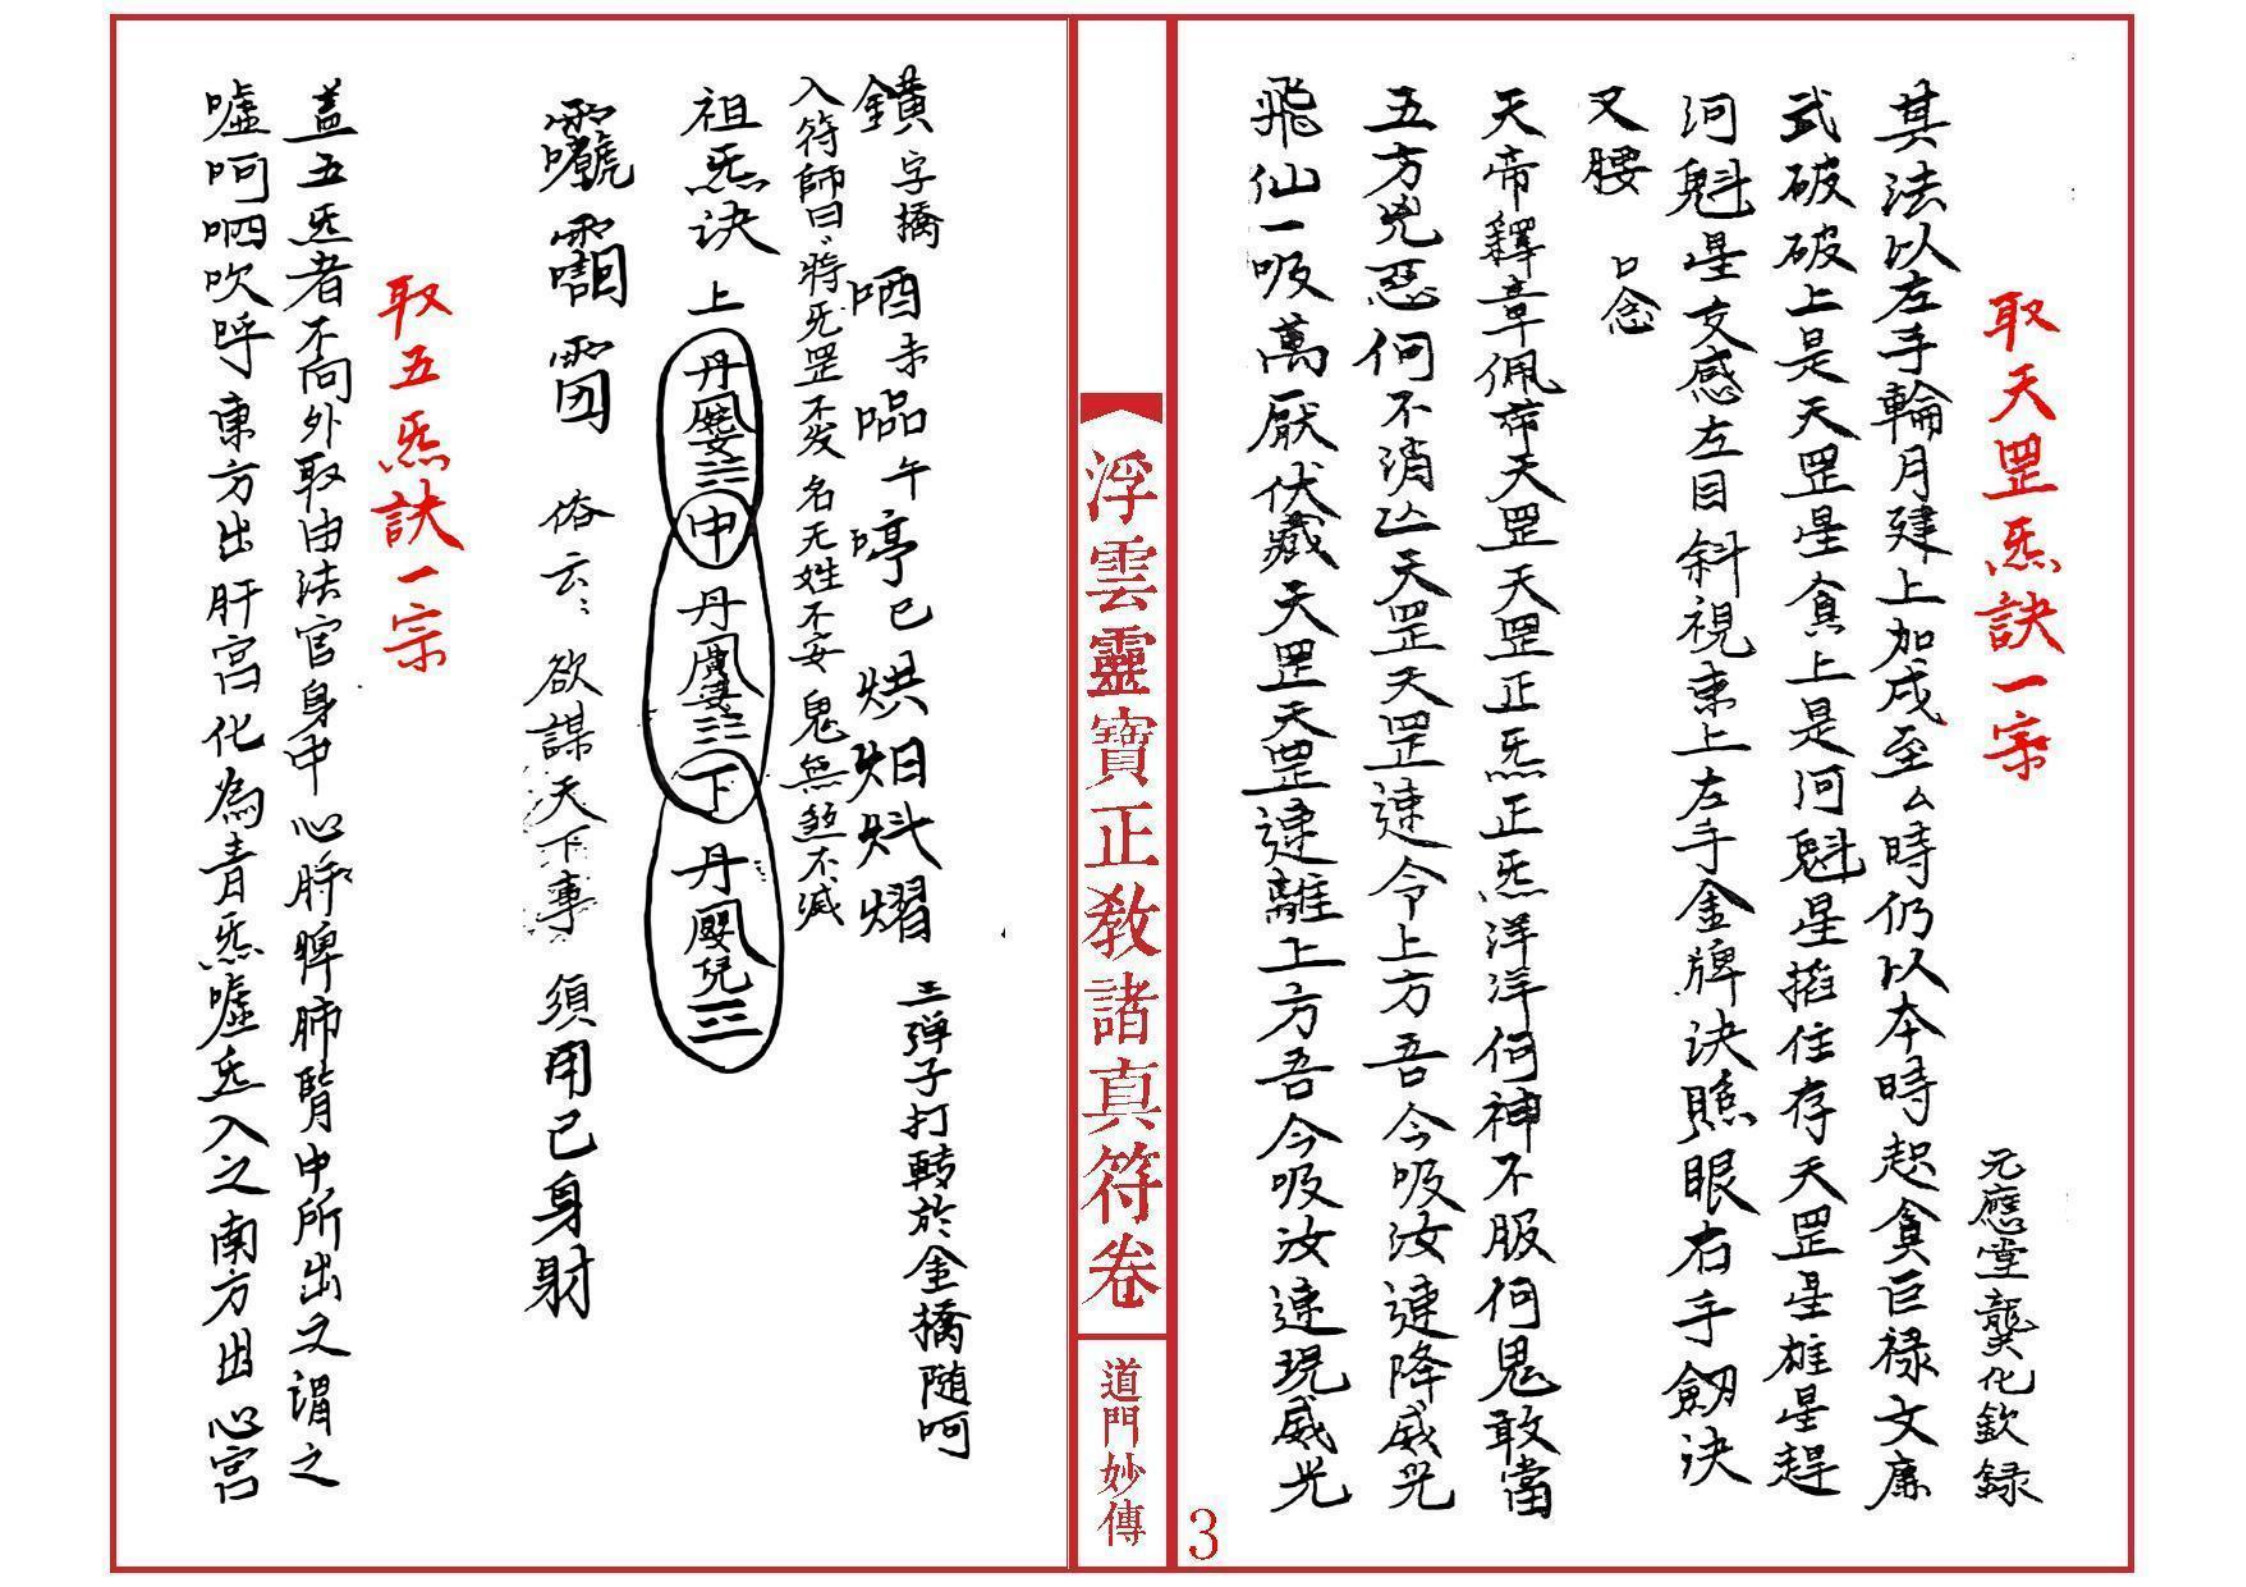 取天罡炁訣一宗
元應堂龔化欽録
其法以左手輪月建上加戌至厶時仍以本時起貪巨禄文廉
武破破上是天罡星貪上是河魁星掐住存天罡星雄星趕
河魁星交感左目斜視東上左手金牌决照眼右手劒决
叉腰 口念
天帝釋章佩帶天罡天罡正炁正炁洋洋何神不服何鬼敢當
五方兇惡何不消亡天罡天罡速令上方吾今吸汝速降威光
飛仙一吸萬厭伏藏天罡天罡速離上方吾今吸汝速現威光
3
浮雲靈寶正教諸真符卷
道門妙傳
鐄字橋 未 午 巳烘 三弹子打轉於金橋随呵
入符師曰将炁罡不发名无姓不安鬼無煞不减
祖炁决上丹 申丹 下丹
俗云：欲謀天下事須用己身財
取五炁訣一宗
盖五炁者不向外取由法官身中心肝脾肺腎中所出又謂之
嘘呵呬吹呼東方出肝宫化為青炁嘘炁入之南方出心宫